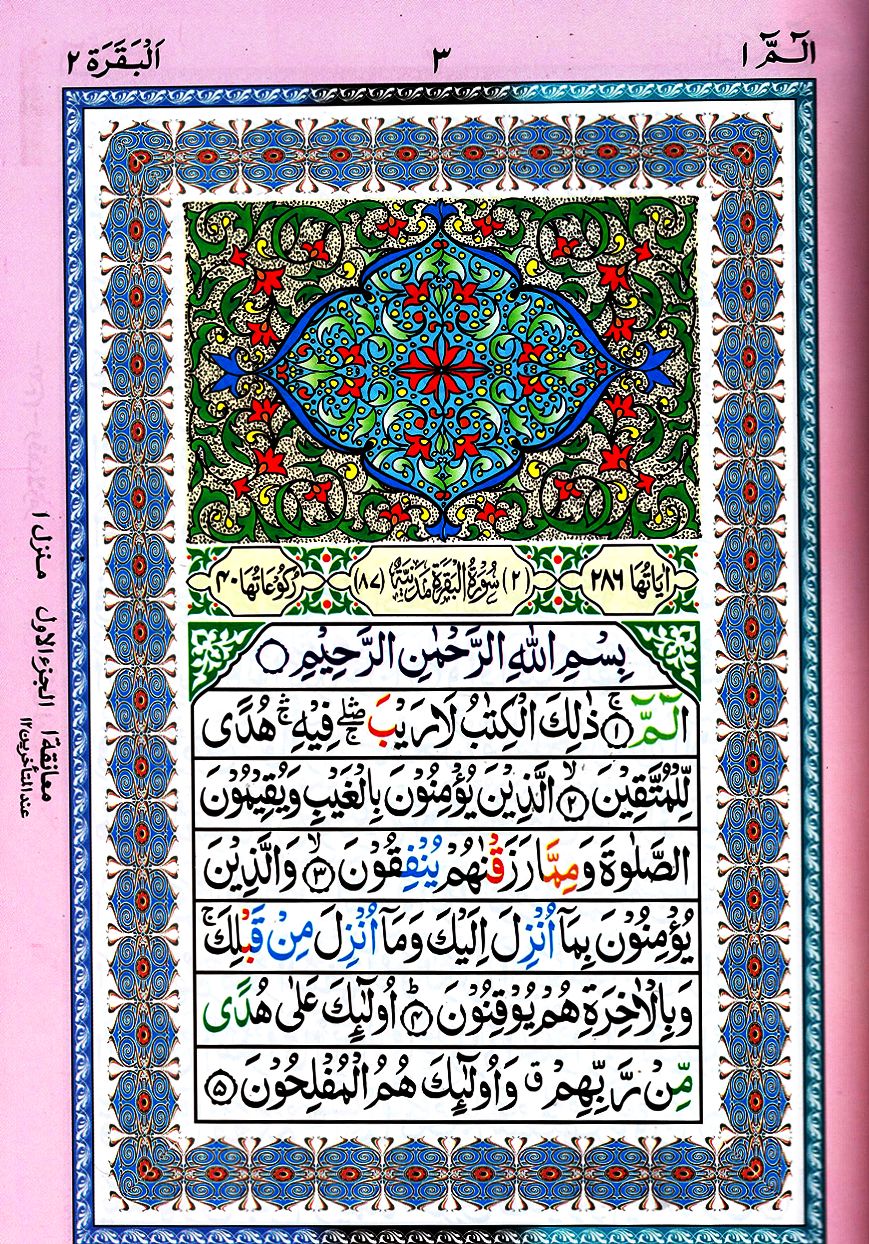 الٓـمّٓ ١
٣
اَلْبَقَرَة ٢
اٰيَاتُهَا ٢٨٦
(٢) سُوْرَةُ الْبَقَرَةِ مَدَنِيَّةٌ (٨٧)
رُكُوْعَاتُهَا ٤٠
بِسْمِ اللّٰهِ الرَّحْمٰنِ الرَّحِيْمِ ○
الٓـمّٓ ۚ﴿١﴾ ذٰلِكَ الْكِتٰبُ لَا رَيْبَ ۛۖۚ فِيْهِ ۛۚ هُدًى
لِّلْمُتَّقِيْنَ ۙ﴿٢﴾ الَّذِيْنَ يُؤْمِنُوْنَ بِالْغَيْبِ وَيُقِيْمُوْنَ
الصَّلٰوةَ وَمِمَّا رَزَقْنٰهُمْ يُنْفِقُوْنَ ۙ﴿٣﴾ وَالَّذِيْنَ
يُؤْمِنُوْنَ بِمَآ اُنْزِلَ اِلَيْكَ وَمَآ اُنْزِلَ مِنْ قَبْلِكَ ۚ
وَبِالْاٰخِرَةِ هُمْ يُوْقِنُوْنَ ؕ﴿٤﴾ اُولٰٓئِكَ عَلٰى هُدًى
مِّنْ رَّبِّهِمْ ۗ وَاُولٰٓئِكَ هُمُ الْمُفْلِحُوْنَ ﴿٥﴾
معانقة ١ الجزء الاول منزل ١
عند المتأخرين ١٢